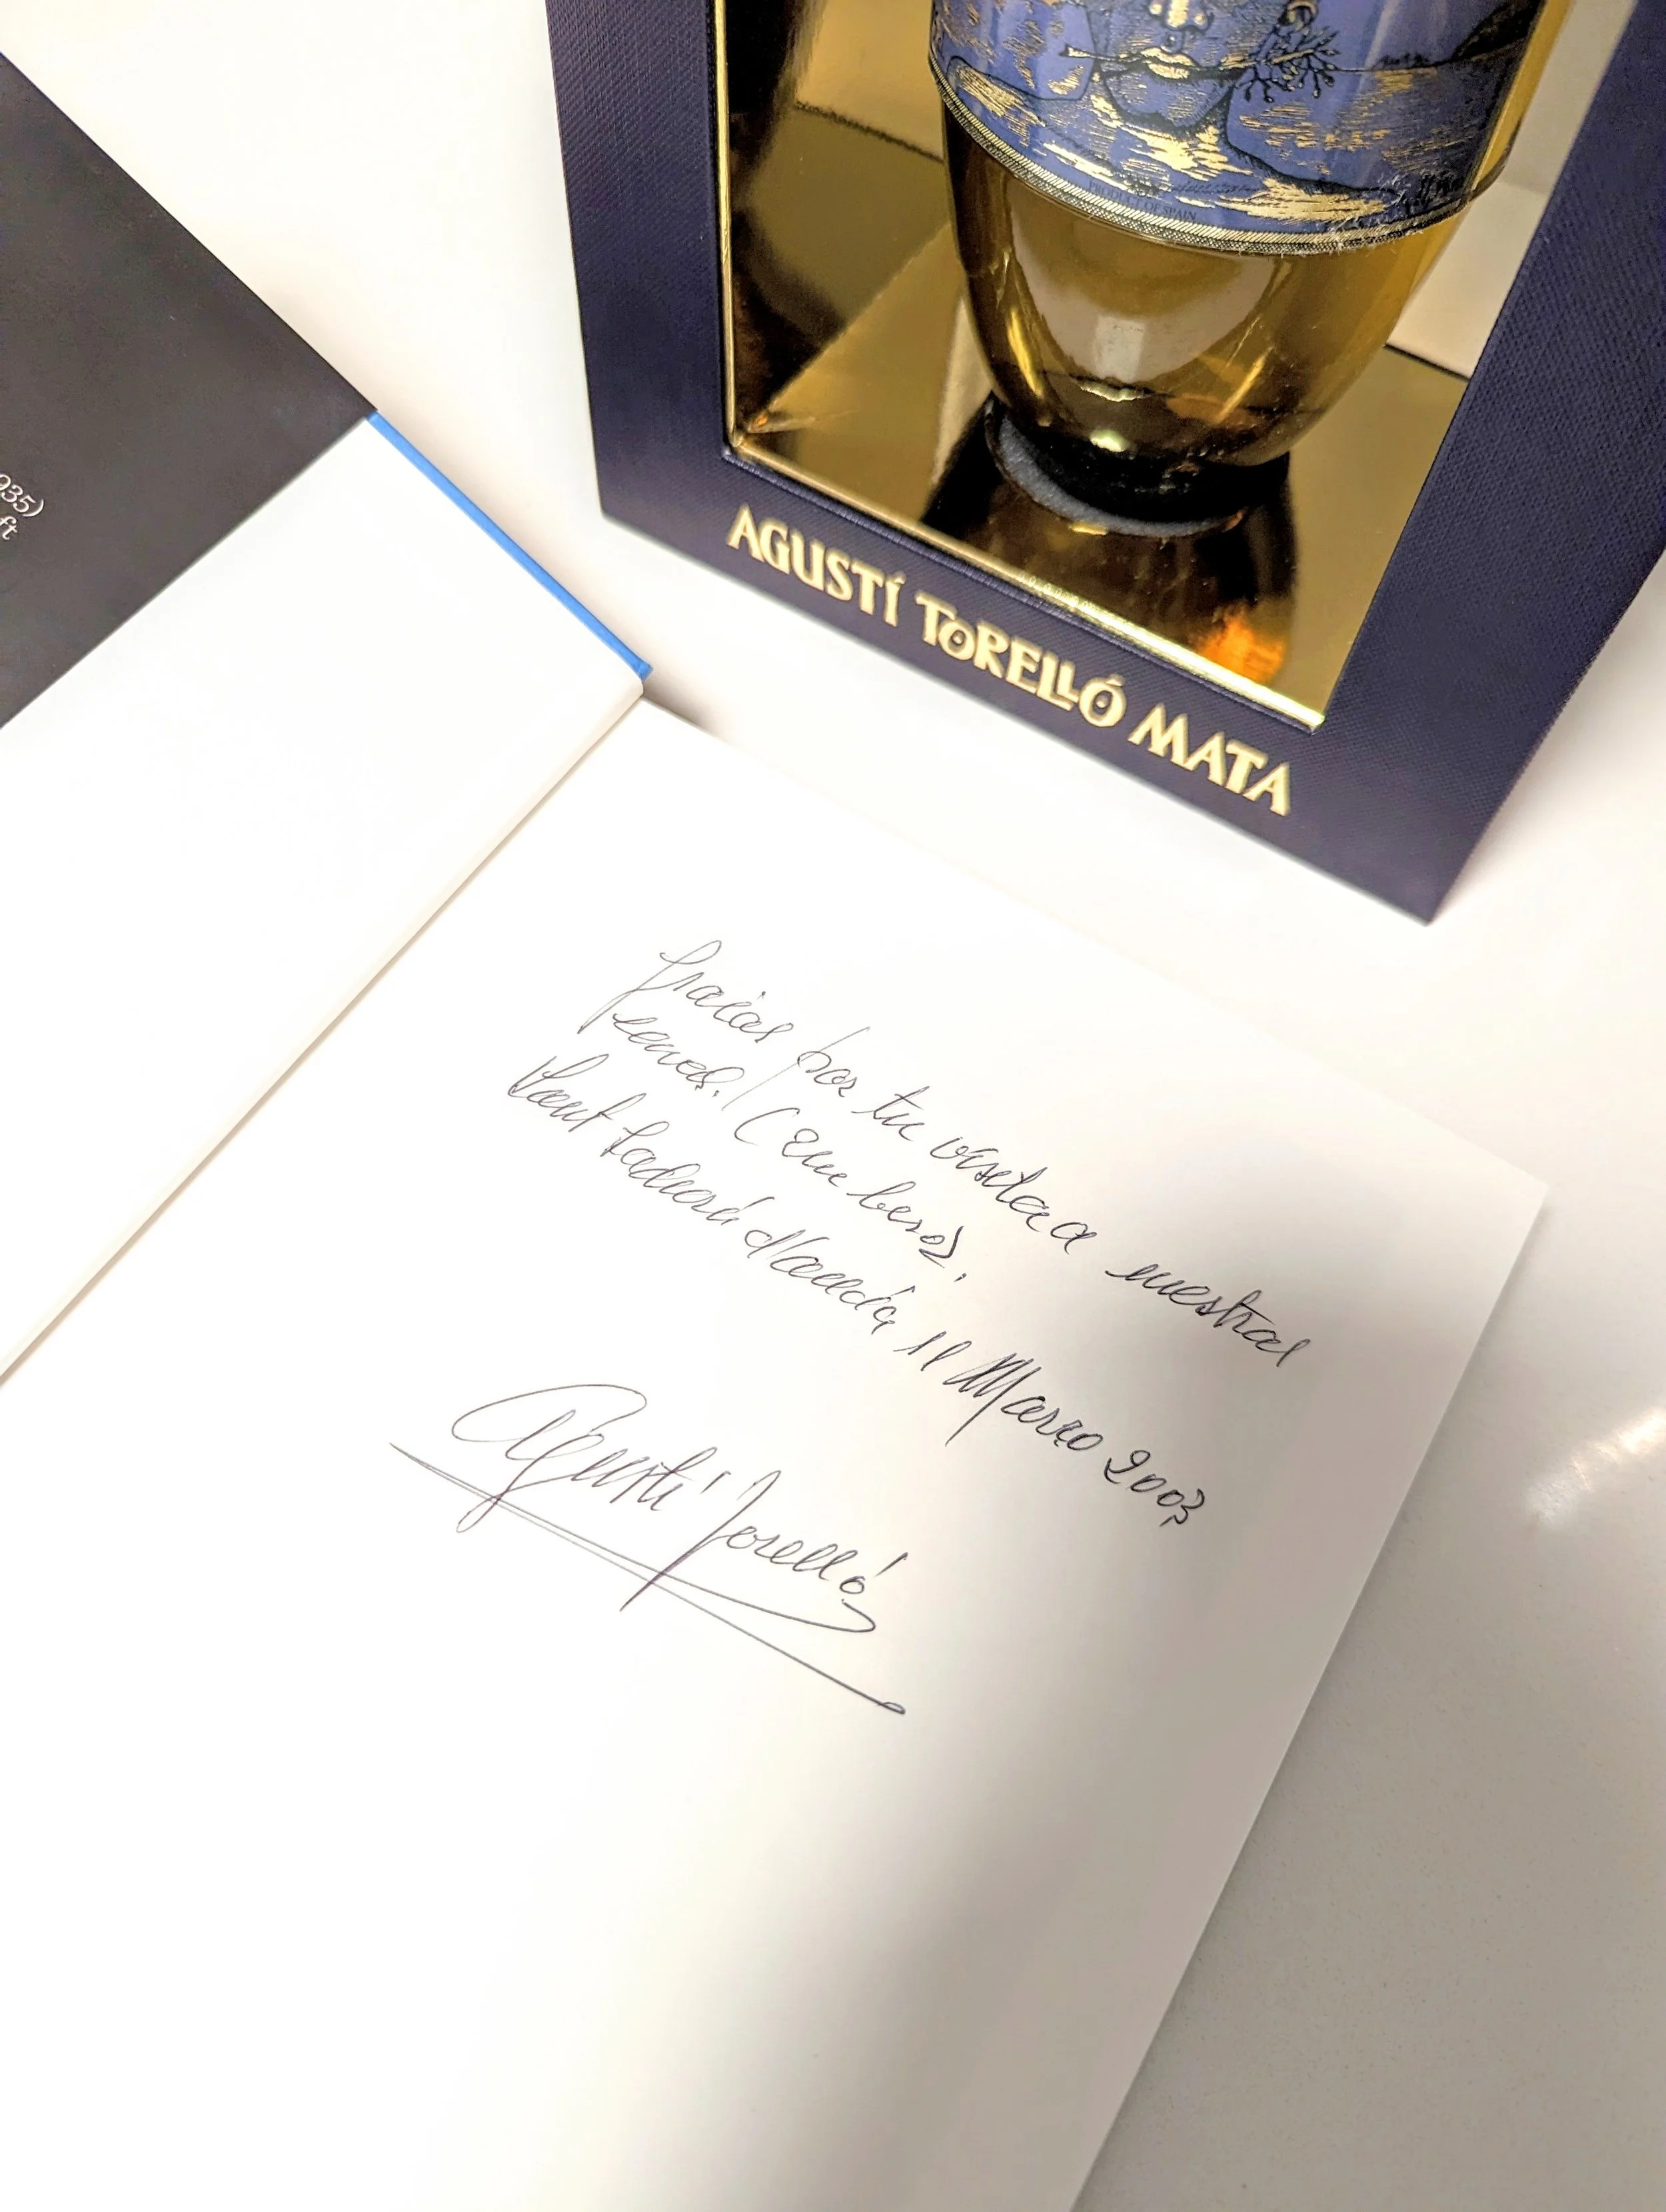 PRODUCT OF SPAIN
AGUSTÍ TORELLÓ MATA
935)
ft
Gracias por tu visita a nuestras
cavas. (Un beso).
Sant Sadurní d'Anoia 11 Marzo 2003
Agustí Torelló